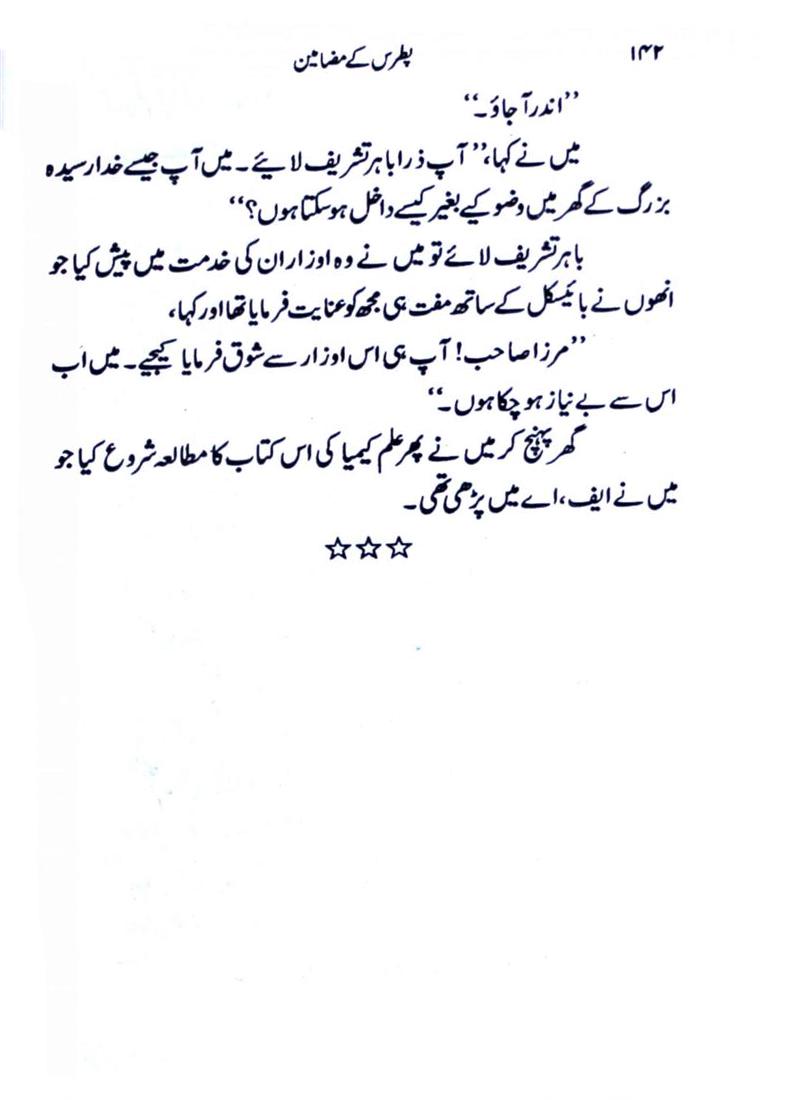 ۱۴۲
پطرس کے مضامین
’’اندر آ جاؤ۔‘‘
میں نے کہا، ’’آپ ذرا باہر تشریف لائیے۔ میں آپ جیسے خدا رسیدہ
بزرگ کے گھر میں وضو کیے بغیر کیسے داخل ہو سکتا ہوں؟‘‘
باہر تشریف لائے تو میں نے وہ اوزار ان کی خدمت میں پیش کیا جو
انھوں نے بائیسکل کے ساتھ مفت ہی مجھ کو عنایت فرمایا تھا اور کہا،
’’مرزا صاحب! آپ ہی اس اوزار سے شوق فرمایا کیجیے۔ میں اب
اس سے بے نیاز ہو چکا ہوں۔‘‘
گھر پہنچ کر میں نے پھر علم کیمیا کی اس کتاب کا مطالعہ شروع کیا جو
میں نے ایف، اے میں پڑھی تھی۔
☆☆☆